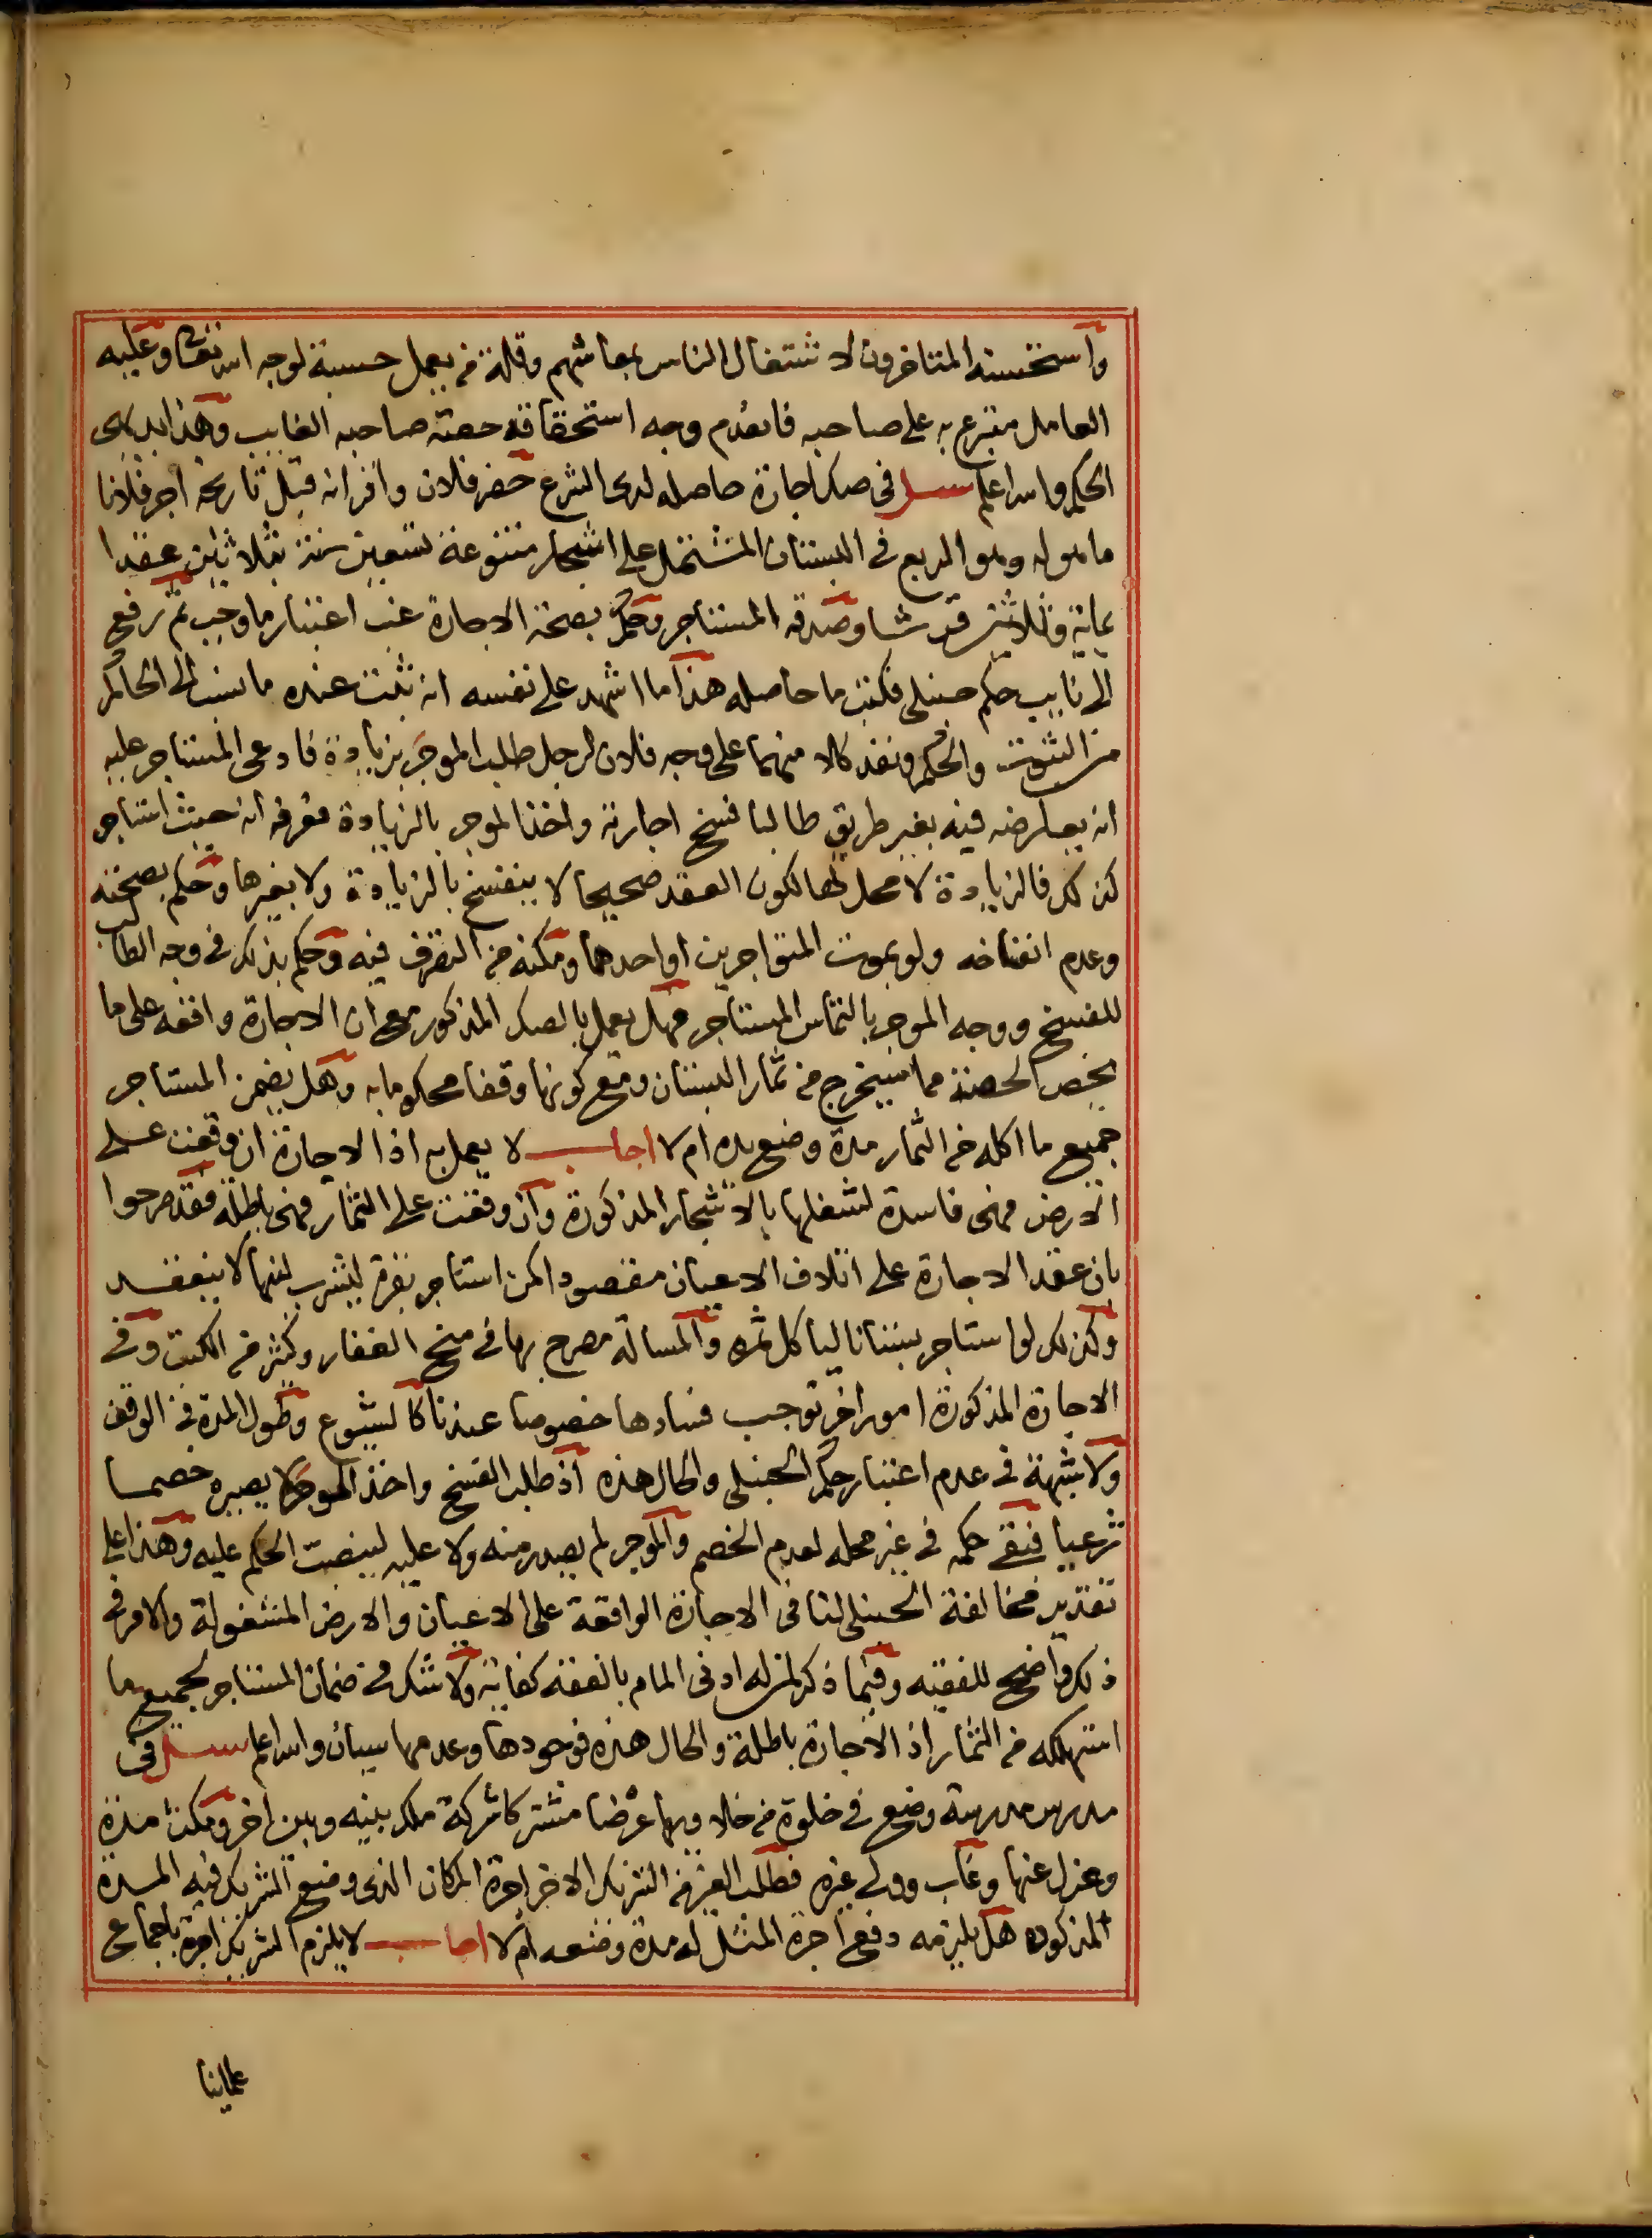 واستحسنه المتاخرون لاشتغال الناس بمعاشهم وقلة من يعمل حسبة لوجه الله تعالى وعليه
العامل متبرع به على صاحبه فانعدم وجه استحقاقه حصته صاحبه الغايب وهذا بديهى
الحكم والله اعلم سئل فى صك اجارة حاصله لدى الشرع حضر فلان واقر انه قبل تاريخه اجر فلانا
ما هو له وهو الربع فى البستان المشتمل على اشجار متنوعة تسعين سنة بثلاثين عقدا
بماية وثلاثين قرشا وصدقه المستاجر وحكم بصحة الاجارة غب اعتبار ما وجب ثم رفع
الى نايب حكم حنبلى فكتب ما حاصله هذا ما اشهد على نفسه انه ثبت عنده ما نسب الى الحاكم
من الثبوت والحكم ونفذ كلا منهما على وجه فلان لرجل طلب الموجر بزيادة فادعى المستاجر عليه
انه يعارضه فيه بغير طريق طالبا فسخ اجارته واخذ الموجر بالزيادة فعرفه انه حيث استاجر
كذلك فالزيادة لا محل لها لكون العقد صحيحا لا ينفسخ بالزيادة ولا بغيرها وحكم بصحته
وعدم انفساخه ولو بموت المتواجرين او احدهما ومكنه من التصرف فيه وحكم بذلك فى وجه الطالب
للفسخ ووجه الموجر بالتماس المستاجر فهل يعمل بالصك المذكور مع ان الاجارة واقعة على ما
يخص الحصة مما سيخرج من ثمار البستان ومع كونها وقفا محكوما به وهل يضمن المستاجر
جميع ما اكله من الثمار مدة وضع يده ام لا اجاب لا يعمل به اذ الاجارة ان وقعت على
الارض فهى فاسدة لشغلها بالاشجار المذكورة وان وقعت على الثمار فهى باطلة فقد صرحوا
بان عقد الاجارة على اتلاف الاعيان مقصودا كمن استاجر بقرة ليشرب لبنها لا ينعقد
وكذلك لو استاجر بستانا لياكل ثمره والمسالة مصرح بها فى منح الغفار وكثير من الكتب وفى
الاجارة المذكورة امور اخر توجب فسادها خصوصا عندنا كالشيوع وطول المدة فى الوقف
ولا شبهة فى عدم اعتبار حكم الحنبلى والحال هذه اذ طلب الفسخ واخذ الموجر لا يصيره خصما
شرعيا فبقى حكمه فى غير محله لعدم الخصم والموجر لم يصدر منه ولا عليه لينصب الحكم عليه وهذا على
تقدير مخالفة الحنبلى لنا فى الاجارة الواقعة على الاعيان والارض المشغولة والامر فى
ذلك واضح للفقيه وفيما ذكر لمن له ادنى المام بالفقه كفاية ولا شك فى ضمان المستاجر لجميع ما
استهلكه من الثمار اذ الاجارة باطلة والحال هذه فوجودها وعدمها سيان والله اعلم سئل فى
مدرس مدرسة وضع فى خلوة من خلاويها عرضا مشتركا شركة ملك بينه وبين اخر ومكث مدة
وعزل عنها وغاب وولى غيره فطلب الغير من الشريك الاخر اجرة المكان الذى وضع الشريك فيه المدة
المذكوره هل يلزمه دفع اجرة المثل له مدة وضعه ام لا اجاب لا يلزم الشريك اجرة باجماع
علماينا